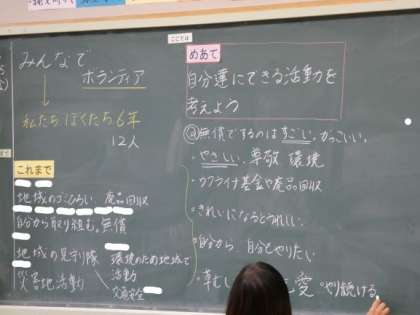 ここでは
みんなで
ボランティア
私たちぼくたち6年
12人
これまで
地域のゴミひろい 廃品回収
自分から取り組む、無償
地域の見守り隊
環境のため地域で
活動
災害地活動
交通安全
めあて
自分達にできる活動を
考えよう
無償でするのはすごい、かっこいい。
・やさしい、尊敬 環境
・ウクライナ基金や廃品回収
・きれいになるとうれしい。
・自分から 自分もやりたい
・草むし
愛 やり続ける。